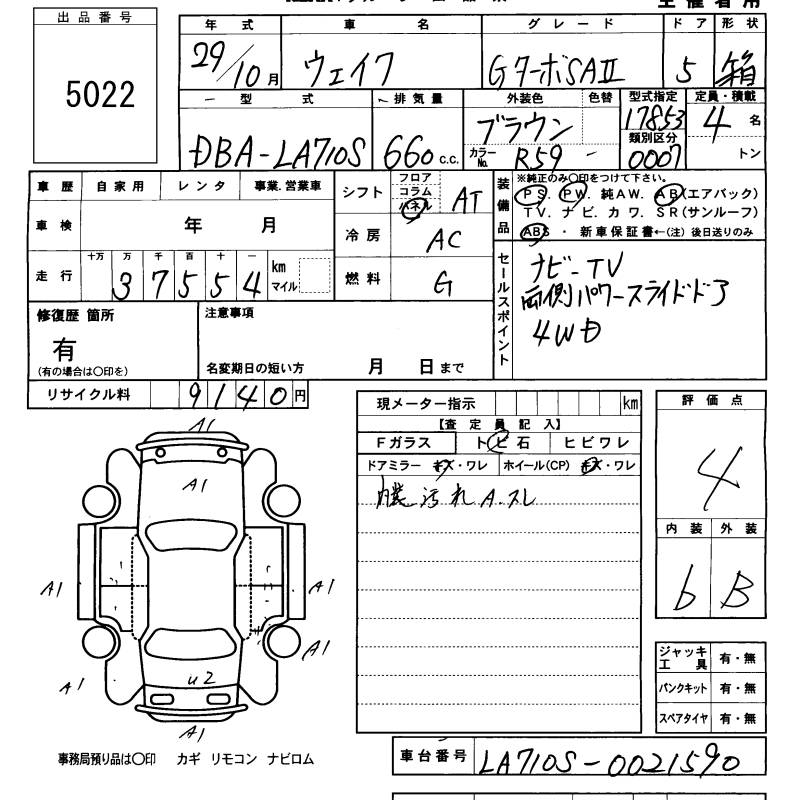 出品番号
5022
年式 車名 グレード ドア 形状
29/10月 ウェイク GターボSAⅡ 5 箱
型式 排気量 外装色 色替 型式指定 定員・積載
DBA-LA710S 660 c.c. ブラウン 17853 4名
カラーNo. R59 - 類別区分 0007 トン
車歴 自家用 レンタ 事業.営業車
車検 年 月
走行 十万 万 千 百 十 一
37554 km マイル
シフト フロア コラム パネル AT
冷房 AC
燃料 G
装備品
※純正のみ〇印をつけて下さい。
PS. PW. 純AW. AB(エアバック)
TV. ナビ. カワ. SR(サンルーフ)
ABS ・ 新車保証書←(注) 後日送りのみ
セールスポイント
ナビ-TV
両側パワースライドドア
4WD
修復歴 箇所
有
(有の場合は〇印を)
注意事項
名変期日の短い方 月 日まで
リサイクル料 9140円
現メーター指示 km
【査定員記入】
Fガラス トビ石 ヒビワレ
ドアミラー キズ・ワレ ホイール(CP) キズ・ワレ
内装汚れ A.スレ
評価点
4
内装 外装
b B
A1
A1
A1 A1
A1
A1
U2
A1
ジャッキ工具 有・無
パンクキット 有・無
スペアタイヤ 有・無
事務局預り品は〇印 カギ リモコン ナビロム
車台番号 LA710S-0021590